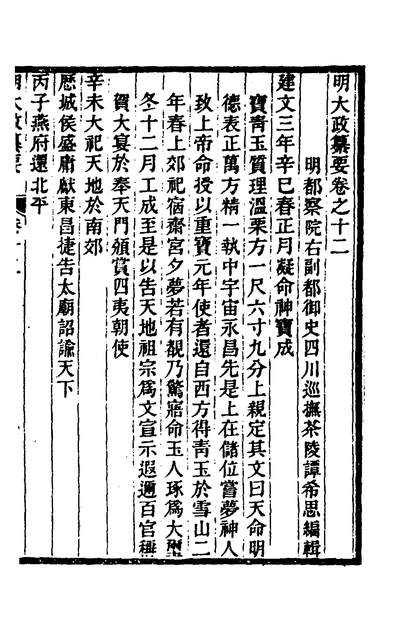 明大政纂要卷之十二
明都察院右副都御史四川巡撫茶陵譚希思編輯
建文三年辛巳春正月凝命神寶成
寶靑玉質理溫栗方一尺六寸九分上親定其文曰天命明
德表正萬方精一執中宇宙永昌先是上在儲位嘗夢神人
致上帝命授以重寶元年使者還自西方得靑玉於雪山二
年春上郊祀宿齋宮夕夢若有覩乃驚寤命玉人琢爲大璽
冬十二月工成至是以告天地祖宗爲文宣示遐邇百官稱
賀大宴於奉天門頒賞四夷朝使
辛未大祀天地於南郊
歷城侯盛庸獻東昌捷告太廟詔諭天下
丙子燕府還北平
明大政纂要